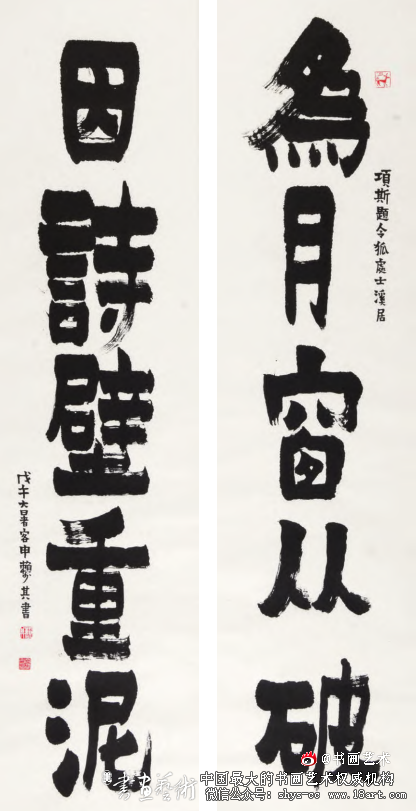 為月窗从破
項斯題令狐處士溪居
因詩壁重泥
戊午大暑客申賴少其書
@书画艺术
書畫藝術
中国最大的书画艺术权威机构
微信公众号：shys-cc www.18art.com